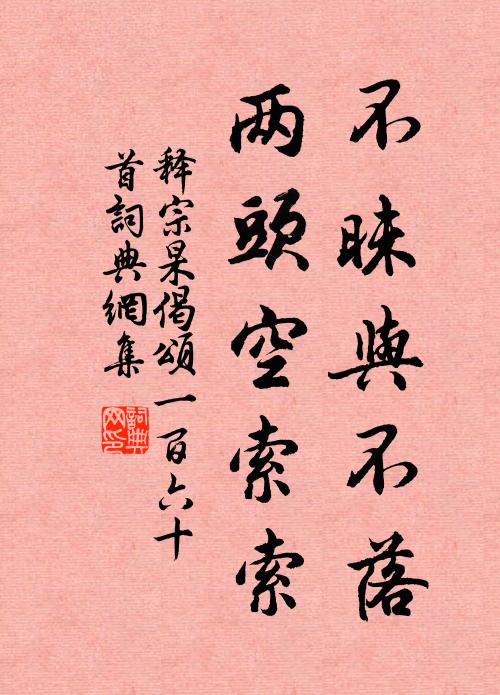 不昧與不落
两頭空索索
释宗杲偈頌一百六十
首詞典網集
詞典
网印